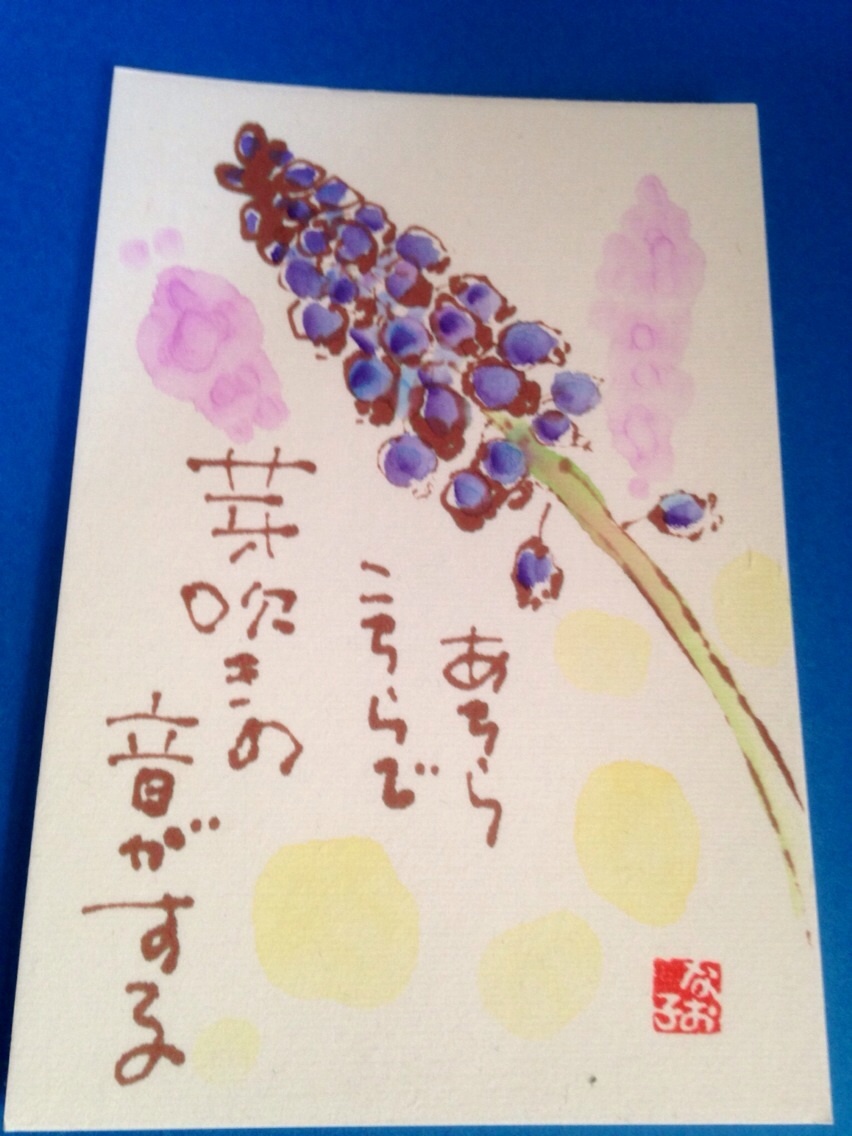 あちら
こちらで
芽吹きの
音がする
なお
子